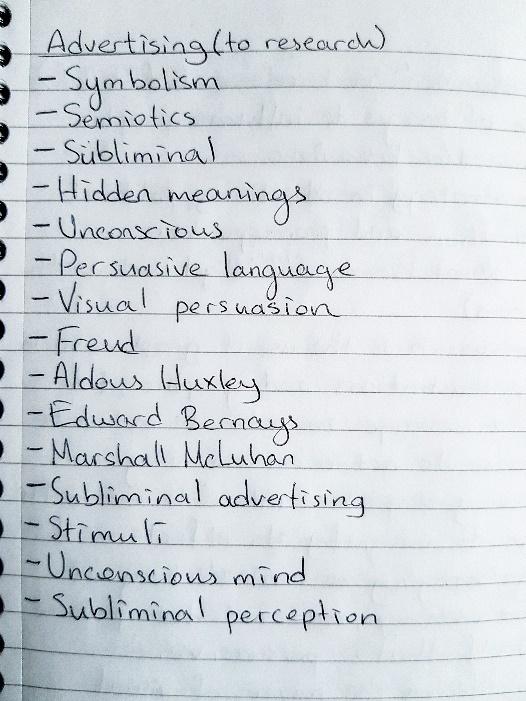 Advertising (to research)
- Symbolism
- Semiotics
- Subliminal
- Hidden meanings
- Unconscious
- Persuasive language
- Visual persuasion
- Freud
- Aldous Huxley
- Edward Bernays
- Marshall McLuhan
- Subliminal advertising
- Stimuli
- Unconscious mind
- Subliminal perception